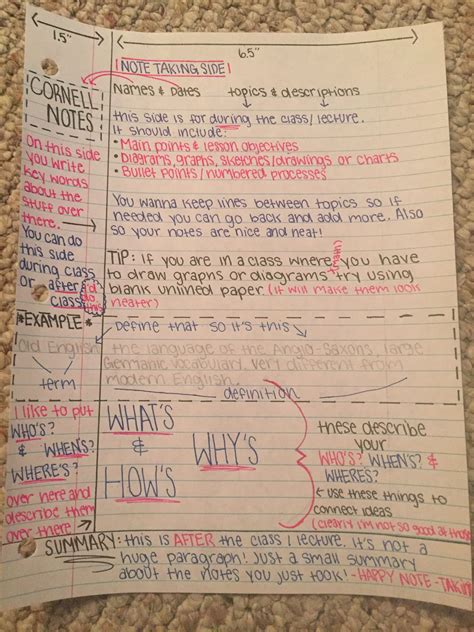 1.5"
6.5"
CORNELL
NOTES
On this side
you write
key words
about the
stuff over
there.
You can do
this side
during class
or after
class
I'd
do
this
NOTE TAKING SIDE
Names & Dates topics & descriptions
this side is for during the class/lecture.
It should include:
• Main points & lesson objectives
• Diagrams, graphs, sketches/drawings or charts
• Bullet points/numbered processes
You wanna keep lines between topics so if
needed you can go back and add more. Also
so your notes are nice and neat!
TIP: if you are in a class where you have
to draw graphs or diagrams try using
(math)
blank unlined paper (if will make them look
neater)
*EXAMPLE*
Define that so it's this
Old English
the language of the Anglo-Saxons, large
Germanic vocabulary. Very different from
modern English.
term
definition
I like to put
WHO'S?
& WHEN'S?
WHERE'S?
over here and
describe them
over there
WHAT'S
&
WHY'S
HOW'S
these describe
your
WHO'S? WHEN'S? &
WHERES?
use these things to
connect ideas
(clearly I'm not so good at those
SUMMARY: this is AFTER the class / lecture. It's not a
huge paragraph! Just a small summary
about the notes you just took! -HAPPY NOTE-TAKIN